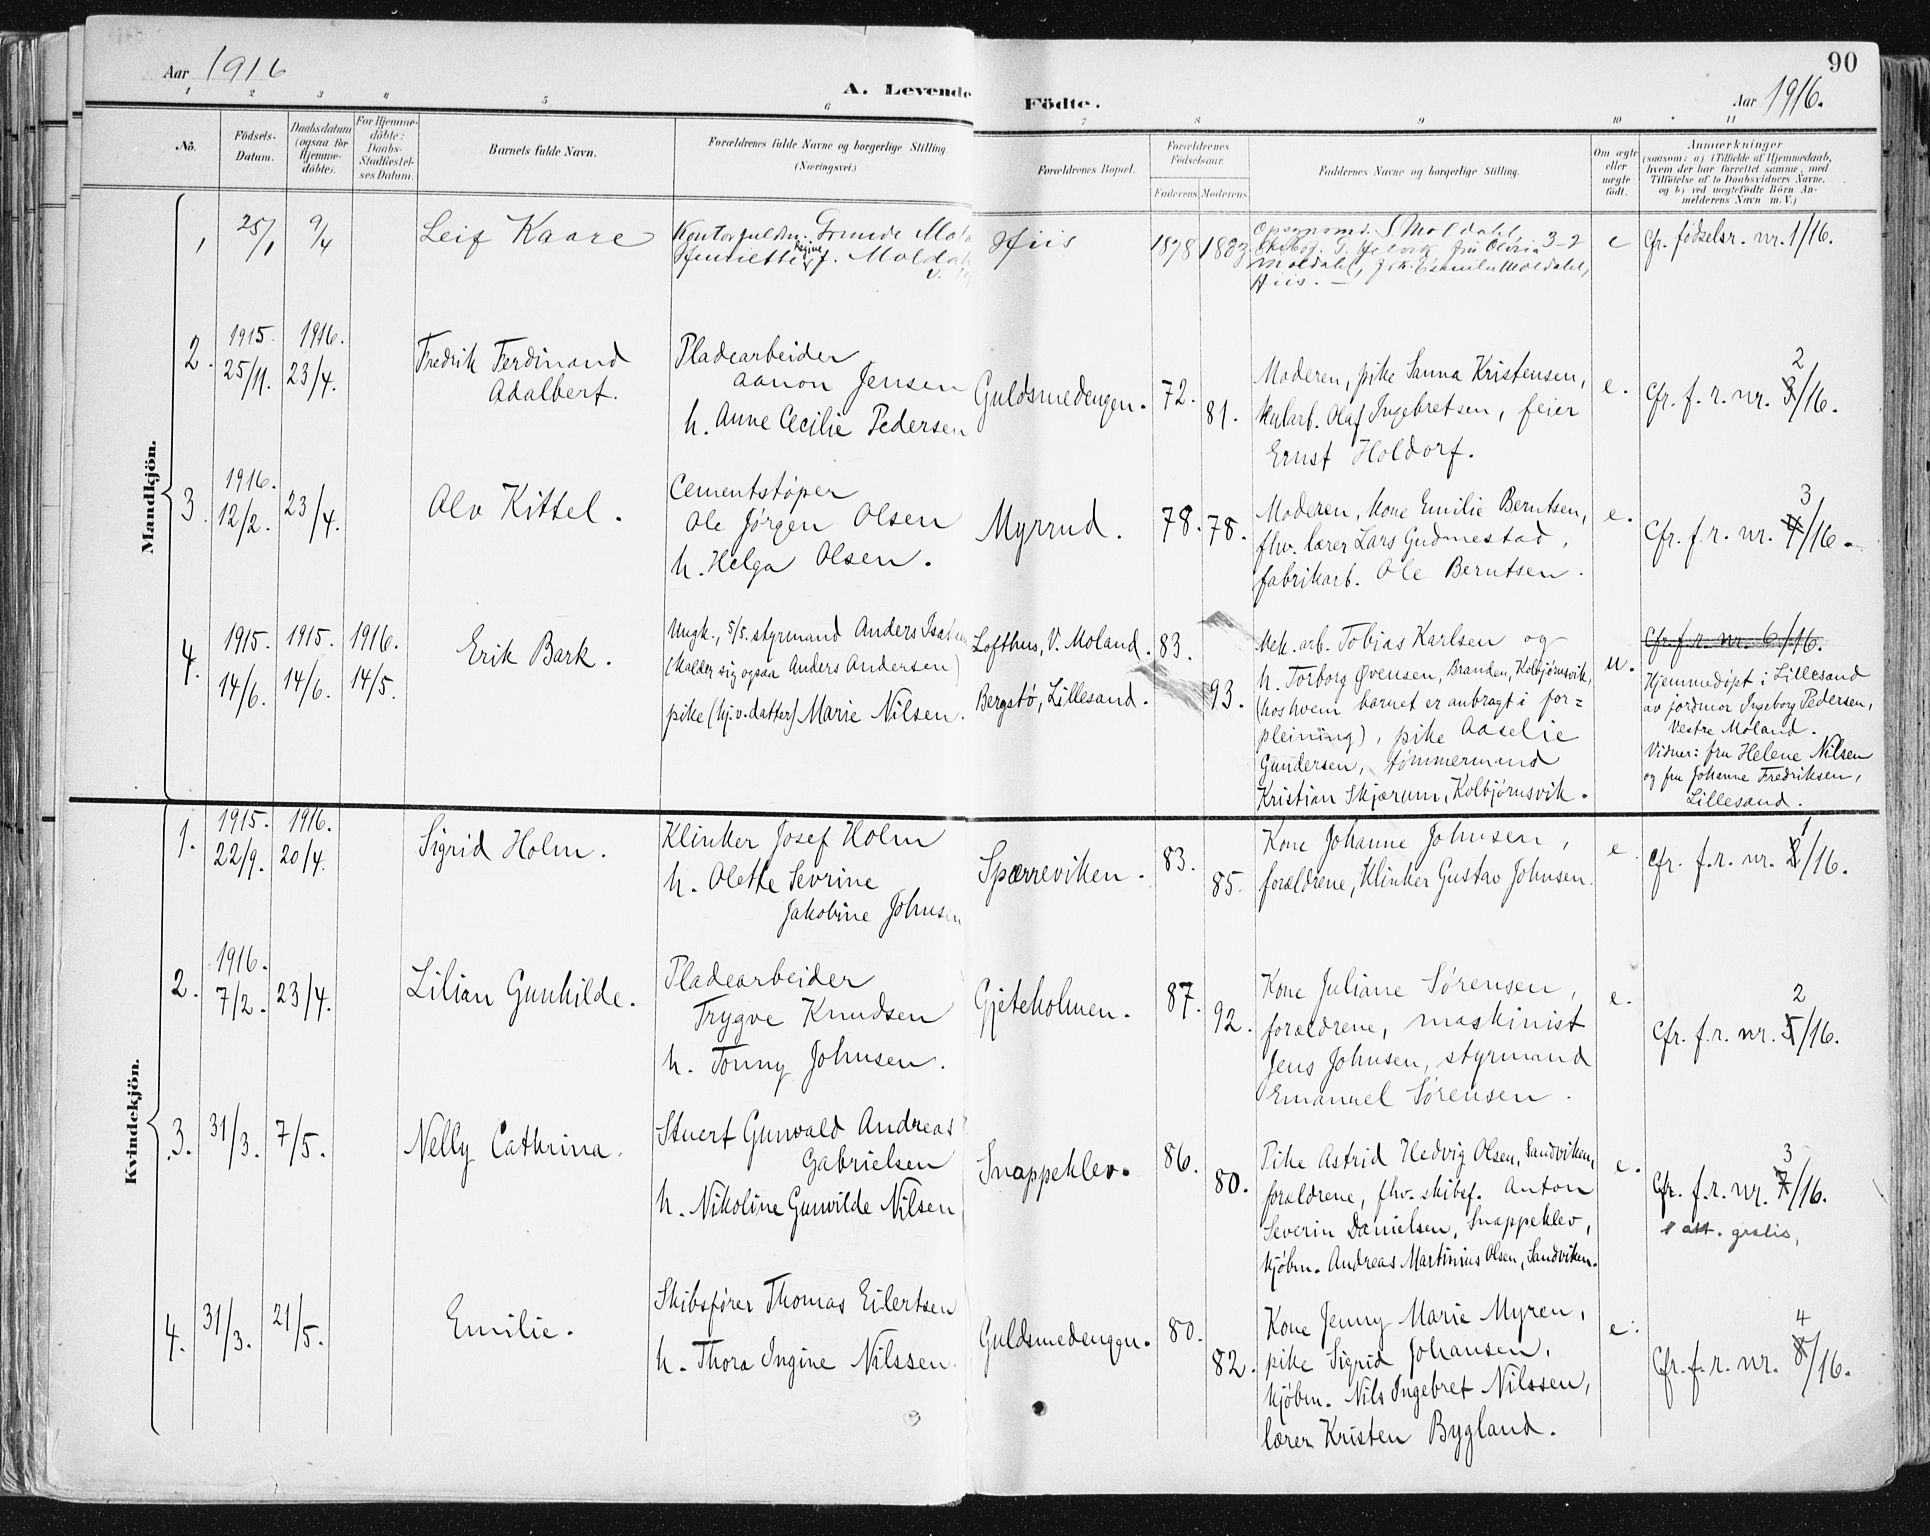 Aar 1916
A. Levende Födte.
90
Aar 1916.
1 2 3 4 5 6 7 8 9 10 11
No.
Födsels-Datum.
Daabsdatum (ogsaa for Hjemmedöbte).
For Hjemmedöbte: Daabs-Stadfæstelses Datum.
Barnets fulde Navn.
Forældrenes fulde Navne og borgerlige Stilling.
(Næringsvei.)
Forældrenes Bopæl.
Forældrenes Födselsaar.
Faderens Moderens
Faddernes Navne og borgerlige Stilling.
Om ægte eller uægte födt.
Anmærkninger
(saasom: a) i Tilfælde af Hjemmedaab,
hvem der har forrettet samme, med
Tilföielse af to Daabsvidners Navne,
og b) ved uægtefödte Börn Anmelderens Navn m. V.)
Mandkjön.
1 25/1 9/4
Leif Kaare
Trunde
Henriette J. Moldahl
Regine
Hiis
1878 1883
Moldahl
Hiis.
e
Cfr. födselsr. nr. 1/16.
2. 1915. 25/11. 1916. 23/4.
Fredrik Ferdinand
Adalbert.
Pladearbeider
Aanon Jensen
h. Anne Cecilie Pedersen
Guldsmedengen.
72. 81.
Moderen, pike Sanna Kristensen,
kularb. Olaf Ingebretsen, feier
Ernst Holdorf.
e.
2
Cfr. f. r. nr. 3/16.
3. 1916. 12/2. 23/4.
Alv Kittel.
Cementstøper
Ole Jørgen Olsen
h. Helga Olsen.
Myrrud.
78. 78.
Moderen, kone Emilie Berntsen,
fhv. lærer Lars Gudmestad,
fabrikarb. Ole Berntsen.
e.
3
Cfr. f. r. nr. 4/16.
4. 1915. 14/6. 1915. 14/6. 1916. 14/5.
Erik Bark.
Ungk., 5/5. styrmand Anders
(kalder sig ogsaa Anders Andersen)
pike (hj.v. datter) Marie Nilsen.
Lofthus, V. Moland.
Bergstø, Lillesand.
83. 93.
Mek. arb. Tobias Karlsen og
h. Torborg Øvensen, Branden, Kolbjørnsvik,
(hos hvem barnet er anbragt i for=
pleining), pike Aaselie
Gundersen, tømmermand
Kristian Skjærum, Kolbjørnsvik.
u.
Cfr. f. r. nr. 6/16.
Hjemmedøpt i Lillesand
av jordmor Ingeborg Pedersen,
Vestre Moland.
Vidner: fru Helene Nilsen
og fru Johanne Fredriksen,
Lillesand.
Kvindekjön.
1. 1915. 22/9. 1916. 20/4.
Sigrid Holm.
Klinker Josef Holm
h. Olette Sevrine
Jakobine Johnsen
Spærreviken.
83. 85.
Kone Johanne Johnsen,
forældrene, klinker Gustav Johnsen.
e.
1
Cfr. f. r. nr. 2/16.
2. 1916. 7/2. 23/4.
Lilian Gunhilde.
Pladearbeider
Trygve Knudsen
h. Tonny Johnsen.
Gjeteholmen.
87. 92.
Kone Juliane Sørensen,
forældrene, maskinist
Jens Johnsen, styrmand
Emanuel Sørensen.
e.
2
Cfr. f. r. nr. 5/16.
3. 31/3. 7/5.
Nelly Cathrina.
Stuert Gunvald Andreas
Gabrielsen
h. Nikoline Gunvilde Nilsen
Snappeklev.
86. 80.
Pike Astrid Hedvig Olsen, Sandviken,
forældrene, fhv. skibsf. Anton
Severin Danielsen, Snappeklev,
kjøbm. Andreas Martinius Olsen, Sandviken.
e.
3
Cfr. f. r. nr. 7/16.
1 att. gratis,
4. 31/3. 21/5.
Emilie.
Skibsfører Thomas Eilertsen
h. Thora Ingine Nilssen.
Guldsmedengen.
80. 82.
Kone Jenny Marie Myren,
pike Sigrid Johansen,
kjøbm. Nils Ingebret Nilssen,
lærer Kristen Bygland.
e.
4
Cfr. f. r. nr. 8/16.